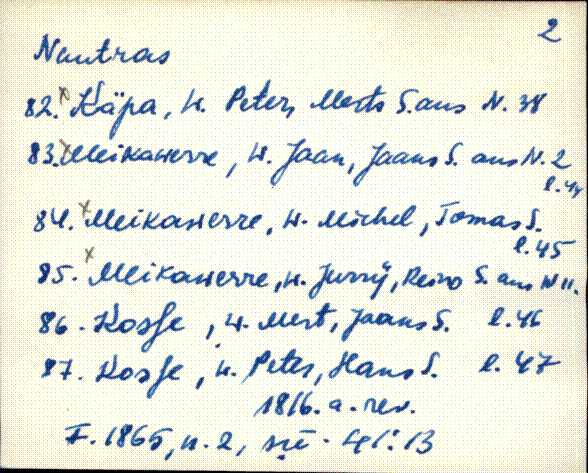 2
Nautras
82. x Käpa, w. Peter, Merts S. aus N. 38
83. x Meikawerre, w. Jaan, Jaans S. aus N. 2
l. 44
84. x Meikawerre, w. Michel, Tomas S.
l. 45
85. x Meikawerre, w. Jurry, Reino S. aus N 11.
86. Kosse, w. Mert, Jaans S. l. 46
87. Kosse, w. Peter, Hans S. l. 47
1816. a. rev.
F. 1865, n. 2, sü. 41:13